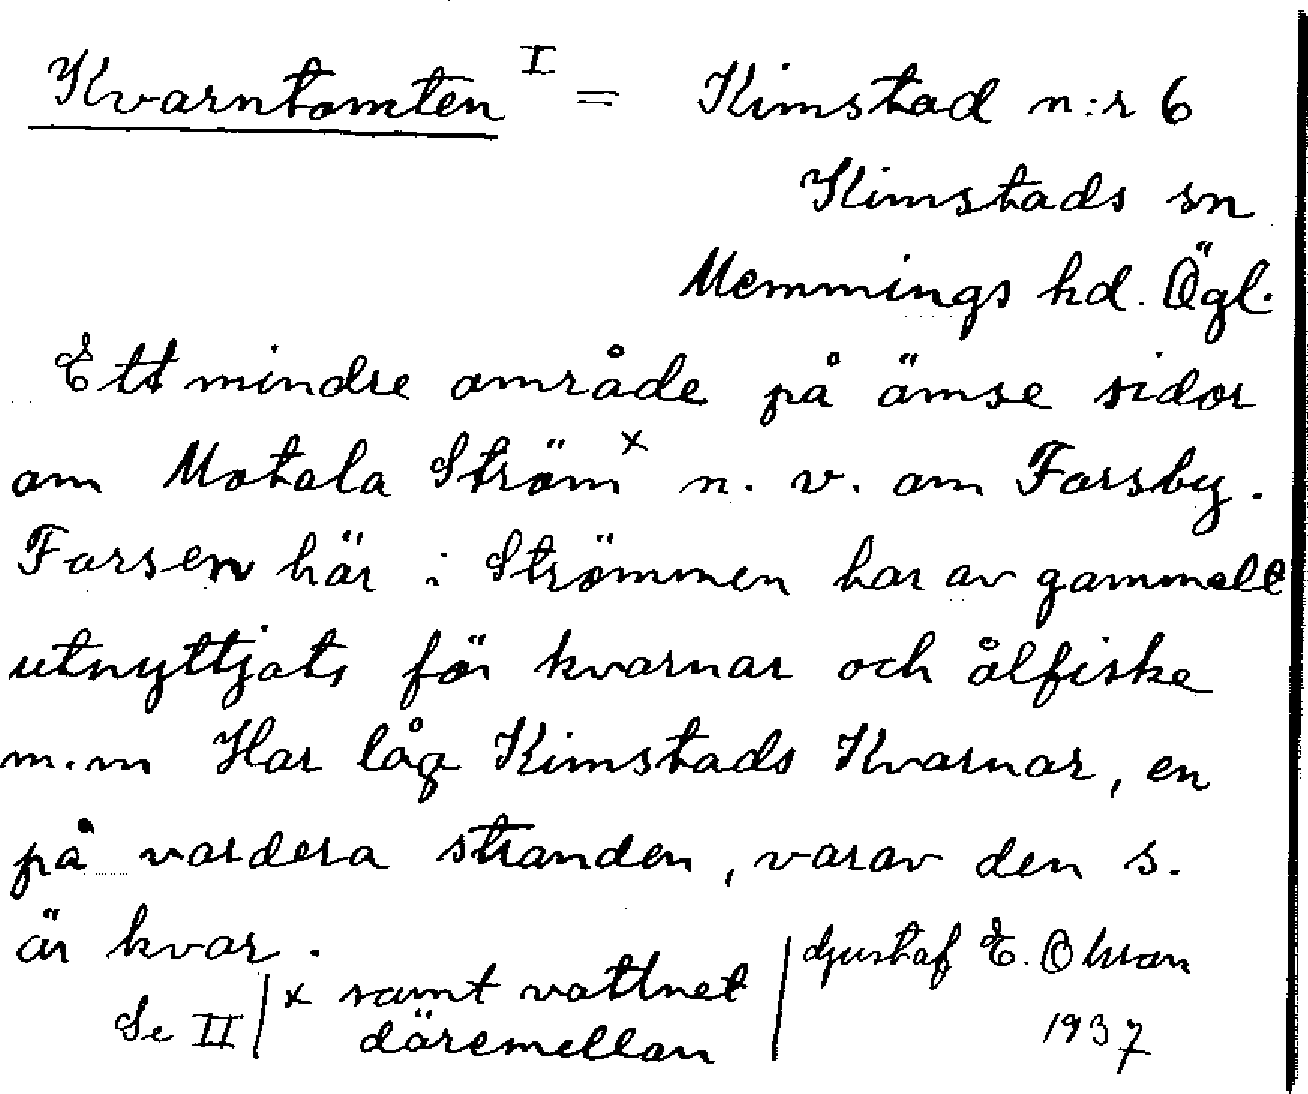 Kvarntomten I = Kimstad n:r 6
Kimstads sn
Memmings hd. Ögl.
Ett mindre område på ömse sidor
om Motala Ström x n. v. om Forsby.
Forsen här i Strömmen har av gammalt
utnyttjats för kvarnar och ålfiske
m.m Har låg Kimstads Kvarnar, en
på vardera stranden, varav den s.
är kvar.
Se II | x samt vattnet däremellan
| Gustaf E. Olsson
1937